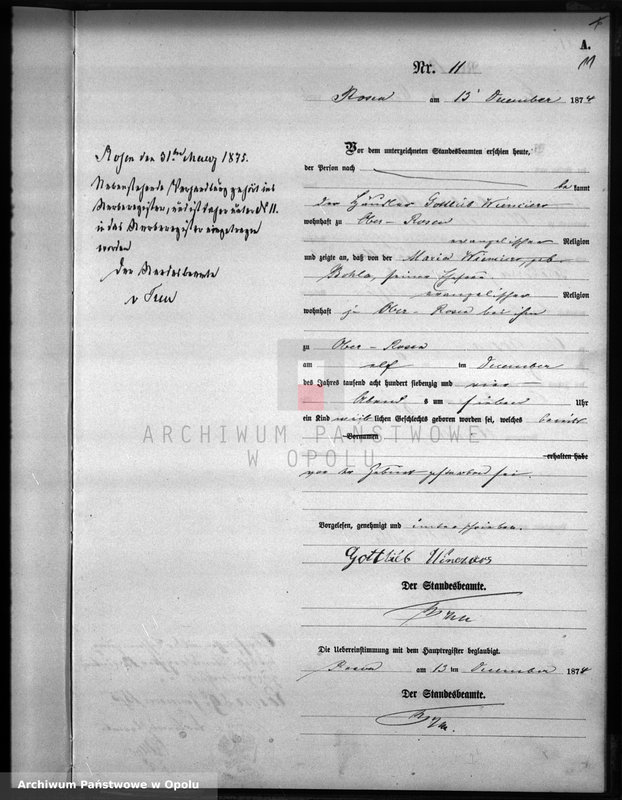 A.
11
Nr. 11
Rosen am 13 December 1874
Vor dem unterzeichneten Standesbeamten erschien heute,
der Person nach
bekannt
der Häusler Gottlieb
wohnhaft zu Ober-Rosen
evangelischer Religion
und zeigte an, daß von der Maria geb.
seiner Ehefrau
evangelischer Religion
wohnhaft zu Ober-Rosen bei ihm
zu Ober-Rosen
am elf ten December
des Jahres tausend acht hundert siebenzig und vier
Abends um sieben Uhr
ein Kind weiblichen Geschlechts geboren worden sei, welches bereits
Vornamen
erhalten habe
vor der Geburt gestorben sei.
Vorgelesen, genehmigt und unterschrieben.
Gottlieb
Der Standesbeamte.
Die Uebereinstimmung mit dem Hauptregister beglaubigt.
Rosen am 13 ten December 1874
Der Standesbeamte.
Rosen den 31ten März 1875.
Nebenstehende Verhandlung gehört ins
Sterberegister, und ist daher unter No 11.
in das Sterberegister eingetragen
worden
Der Standesbeamte
ARCHIWUM PAŃSTWOWE
W OPOLU
Archiwum Państwowe w Opolu